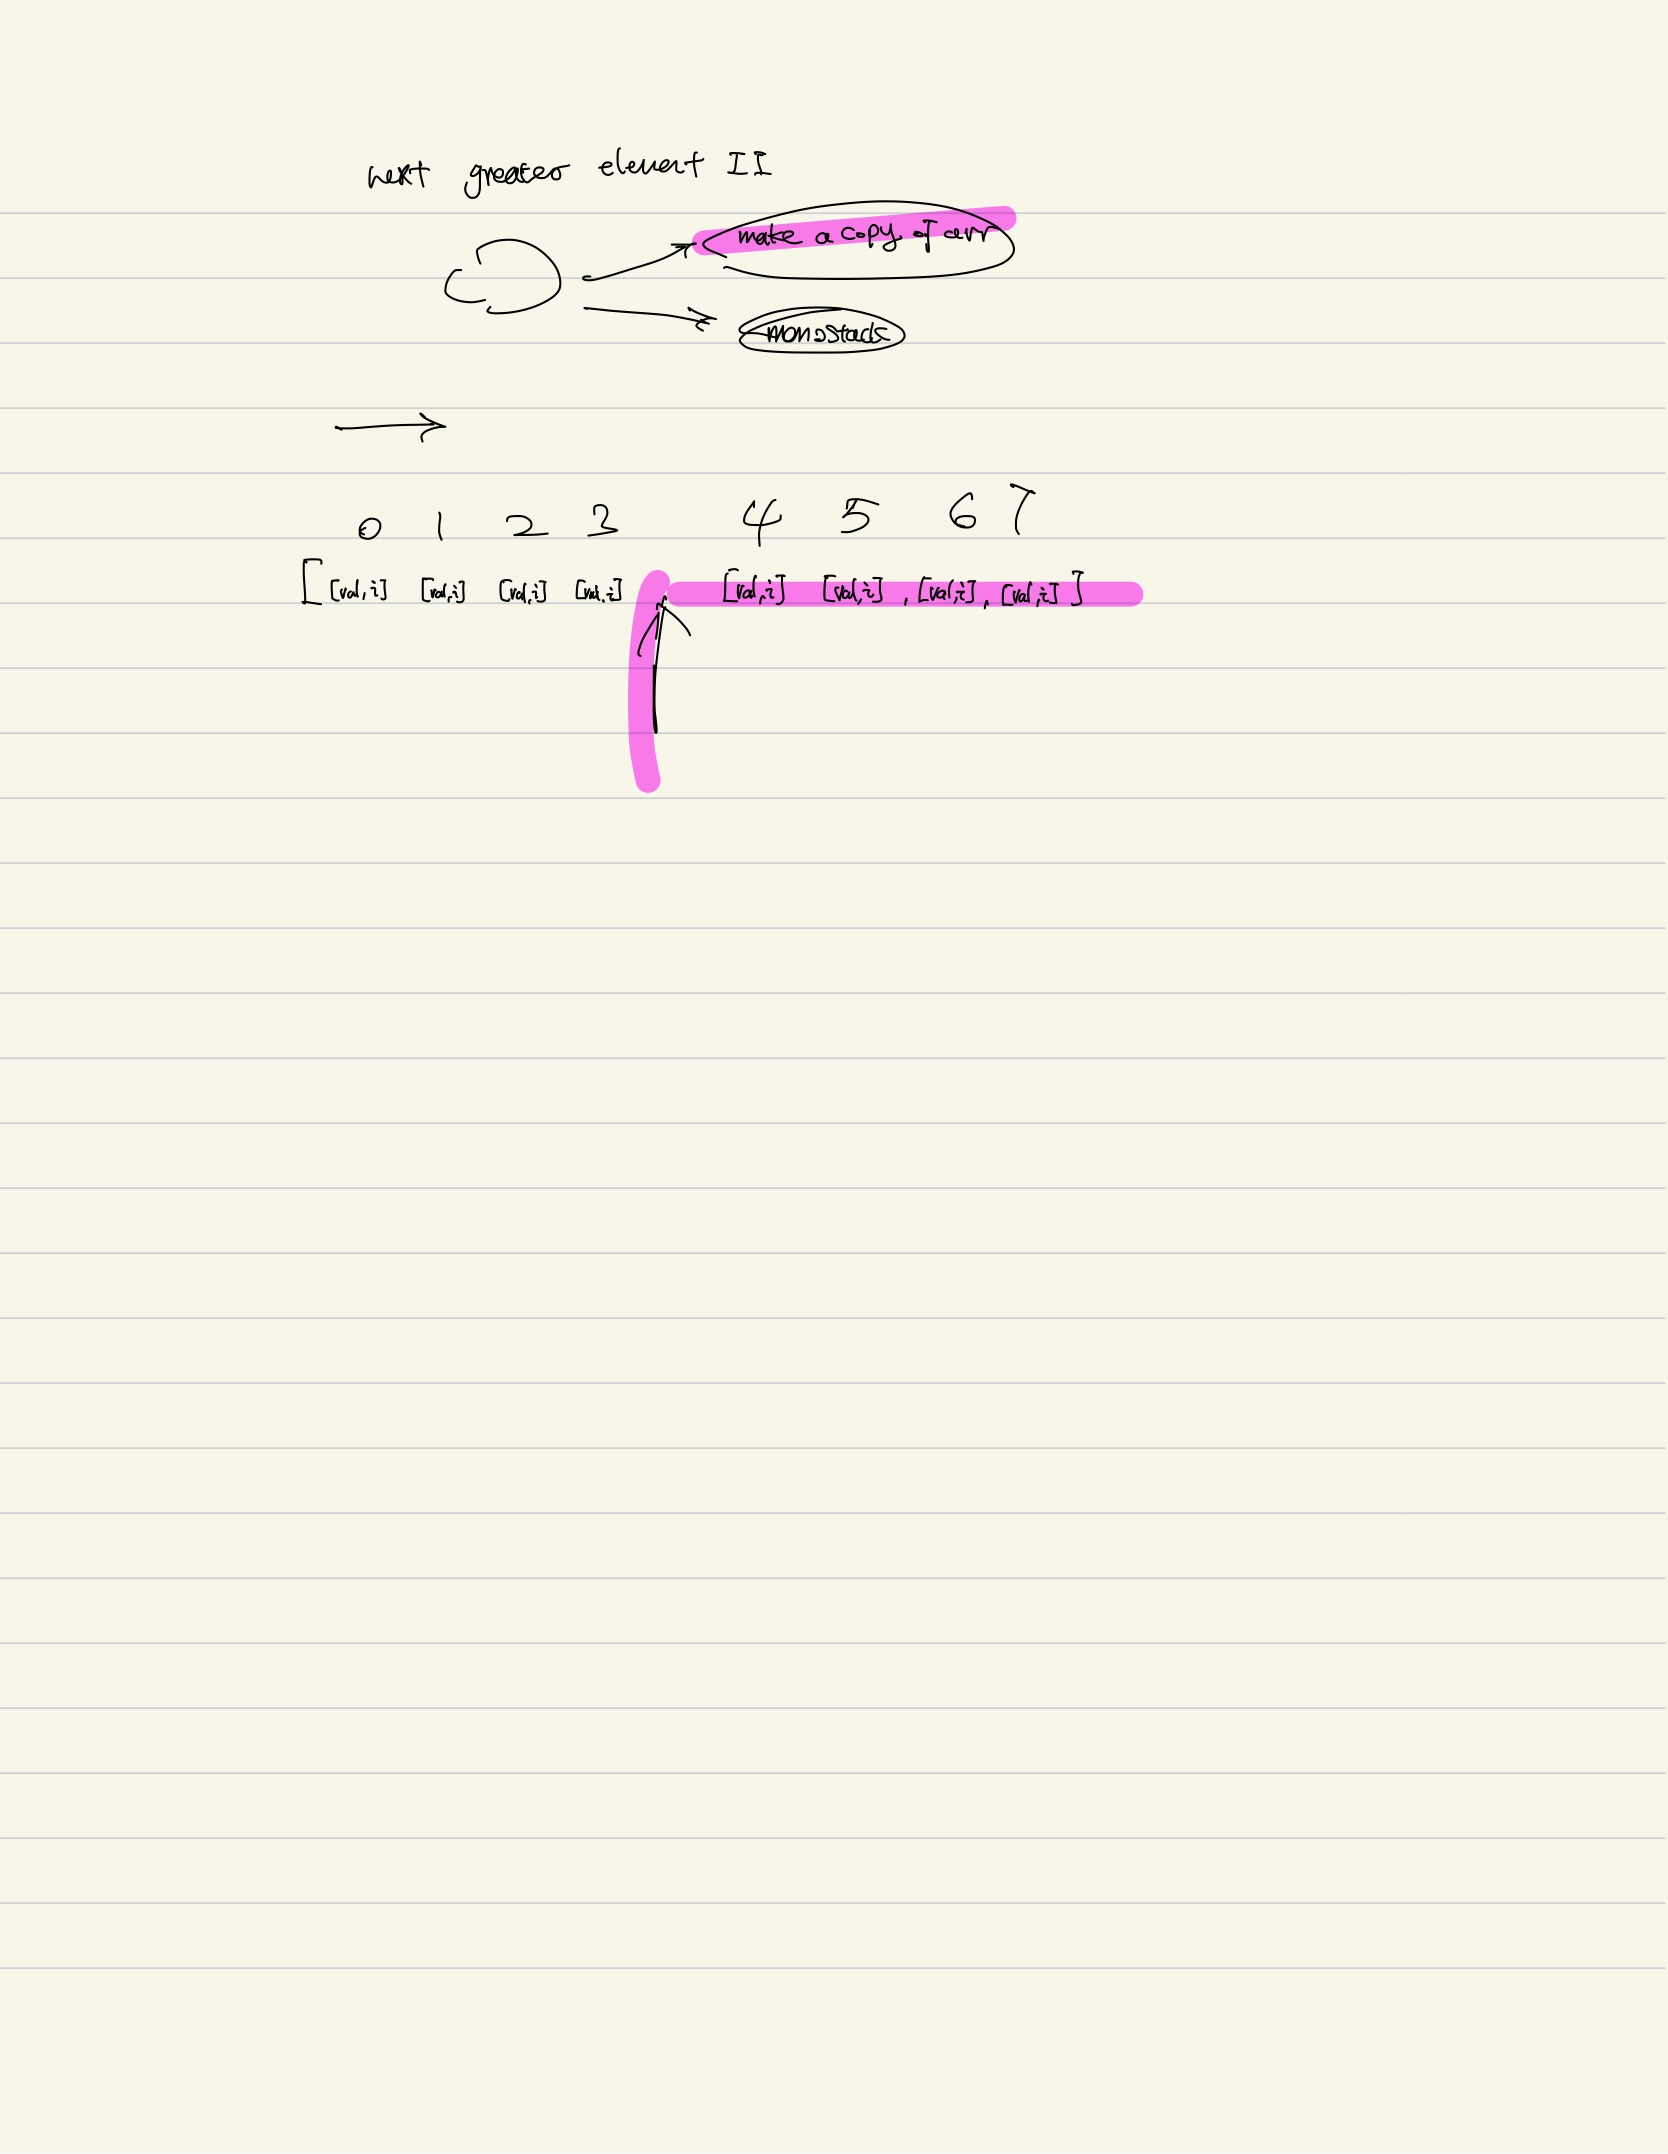 next greater element II
make a copy of arr
monostack
0 1 2 3 4 5 6 7
[ [val, i] [val, i] [val, i] [val, i] [val, i] [val, i] , [val, i] , [val, i] ]